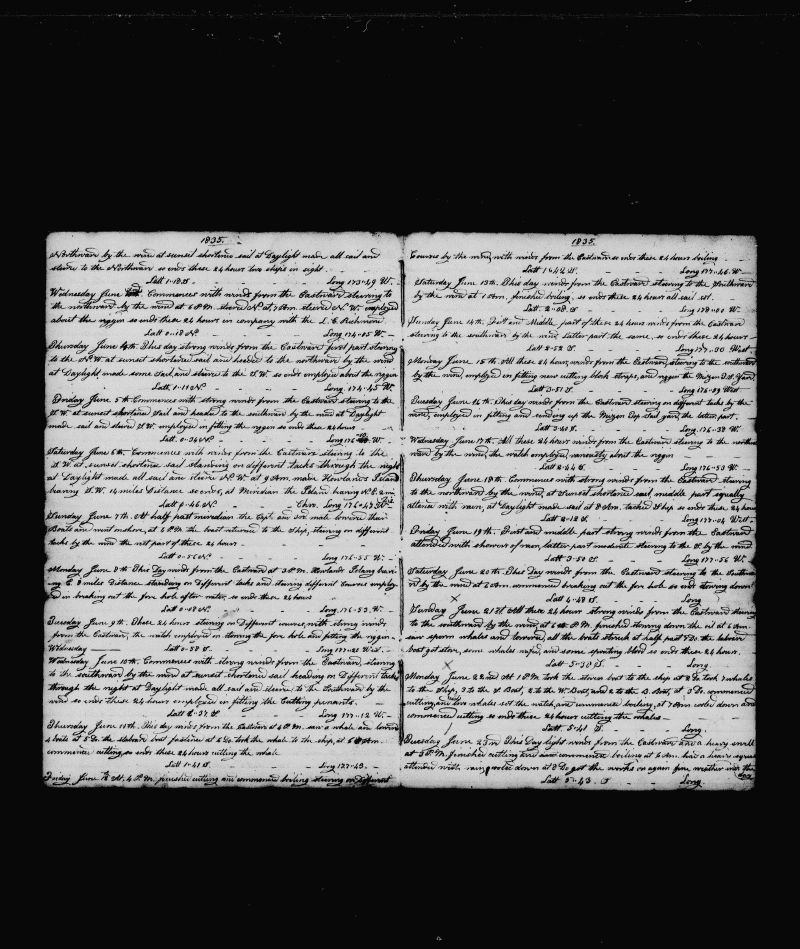 1835.
Northward by the wind at sunset shortened sail at Daylight made all sail and
steered to the Northward so ends these 24 hours two ships in sight.
Latt 1-18 S - - - Long 173-49 W.
Wednesday June Commences with winds from the Eastward steering to
the northward by the wind at 6 P.M. steered N. at 7 A.m. steered N. W. employed
about the riggen so ends these 24 hours in company with the L. C. Richmond
Latt 0-18 N. - - - Long 174-15 W.
Thursday June 4th. This day strong winds from the Eastward first part steering
to the N.W. at sunset shortened sail and headed to the northward by the wind
at Daylight made some Sail, and steered to the S. W. so ends employed about the riggen
Latt. 1-11 N. - - - Long. 174-45 W.
Friday June 5th Commences with strong winds from the Eastward steering to the
S. W. at sunset shortened Sail and headed to the southward by the wind at Daylight
made sail and steered S. W. employed in fitting the riggen so ends these 24 hours
Latt. 0-36 N. - - - Long 176 W.
Saturday June 6th. Commences with winds from the Eastward steering to the
S. W. at sunset shortened sail standing on different tacks through the night
at Daylight made all sail and steered N. W. at 9 A.m. made Howlands Island
bearing S.W. 14 miles Distance so ends, at Meridian the Island bearing N. E. 2 mi
Latt 0-46 N. - - Chro. Long 176-47 W.
Sunday June 7th. At half past meridian the Capt. and 2nd mate lowered their
Boats and went onshore, at 6 P.M. the boat returned to the Ship, steering on different
tacks by the wind the rest part of these 24 hours
Latt 0-56 N. - - - Long 176-55 W.
Monday June 8th This Day winds from the Eastward at 3 P.M. Howlands Island bear-
ing E. 8 miles Distance standing on Different tacks and steering different Courses employ-
ed in breaking out the fore hole after water, so ends these 24 hours
Latt 0-08 N. - - - Long 176-53. W.
Tuesday June 9th. These 24 hours steering on Different courses, with strong winds
from the Eastward, the watch employed in stowing the fore hole and fitting the riggen
Wednesday Latt 0-58 S. - - - Long 177-21 W.
Wednesday June 10th. Commences with strong winds from the Eastward, steering
to the southward by the wind at sunset shortened sail heading on Different tacks
through the night at Daylight made all sail and steered to the Southward by the
wind so ends these 24 hours employed in fitting the Cutting penants.
Latt 2-27 S - - - Long 177-12 W.
Thursday June 11th. This day winds from the Eastward at 4 P.M. saw a whale and lowered
4 boats at 5 Do. the starboard boat fastened at 6 Do. took the whale to the ship, at 5 A.m.
commenced cutting so ends these 24 hours cutting the whale
Latt 1-41 S - - - Long 177-43.
Friday June 12 At 4 P.M. finished cutting and commenced boiling steering on Different
1835.
Courses by the wind, with winds from the Eastward so ends these 24 hours boiling
Latt 1-42 S. - - - Long 177-46. W.
Saturday June 13th. This day winds from the Eastward steering to the Southward
by the wind at 1 A.m. finished boiling, so ends these 24 hours all sail set.
Latt. 2-08. S. - - - Long 178-00 W.
Sunday June 14th. First and Middle part of these 24 hours winds from the Eastward
steering to the southward by the wind, Latter part the same, so ends these 24 hours
Latt 2-58 S. - - - Long 177-30 West
Monday June 15th. All these 24 hours, winds from the Eastward, steering to the southward
by the wind, employed in fitting new cutting block straps, and riggen the Mizen T.S. Yard.
Latt 3-51 S. - - - Long 176-39 West
Tuesday June 16th. This day winds from the Eastward steering on different tacks by the
wind, employed in fitting and sending up the Mizen Top-Sail yard, the latter part.
Latt 3-41 S. - - - Long. 176-38 W.
Wednesday June 17th. All these 24 hours winds from the Eastward steering to the northw-
ard by the wind, the watch employed variously about the riggen
Latt 2-44 S. - - - Long 176-53 W.
Thursday June 18th. Commences with strong winds from the Eastward steering
to the northward by the wind, at sunset shortened sail, middle part squally
attended with rain, at Daylight made sail at 8 A.m. tacked Ship, so ends these 24 hours
Latt 2-18 S. - - - Long 177-04 West
Friday June 19th. First and middle part strong winds from the Eastward
attended with showers of rain, latter part moderate steering to the S. by the wind
Latt 3-50 S. - - - Long 177-56 W.
Saturday June 20th. This Day winds from the Eastward steering to the Southw-
ard by the wind at 6 A.m. commenced breaking out the fore hole so ends stowing down
X Latt 4-48 S. - - - Long
Sunday June 21st All these 24 hours strong winds from the Eastward steering
to the southward by the wind, at 6 P.M. finished stowing down the oil at 6 A.m.
saw sperm whales and lowered all the boats struck at half past 7 Do. the larboard
boat got stove, some whales and some spouting blood so ends these 24 hours.
X Latt. 5-30 S. - - - Long.
Monday June 22nd At 1 P.M. took the stoven boat to the ship at 2 Do. took 7 whales
to the Ship, 3 to the S. Boat, 2 to the W. Boat, and 2 to the B. Boat, at 3 Do. commenced
cutting, and two whales set the watch, and commenced boiling, at 7 A.m. cooled down and
commenced cutting so ends these 24 hours cutting the whales
Latt. 5-41 S. - - - Long.
Tuesday June 23rd This Day light winds from the Eastward and a heavy swell
at 5 P.M. finished cutting and commenced boiling at 6 A.m. had a heavy squall
attended with rain, cooled down at 8 Do. got the works on again fine weather
day
Latt 5-43. S - - - Long.